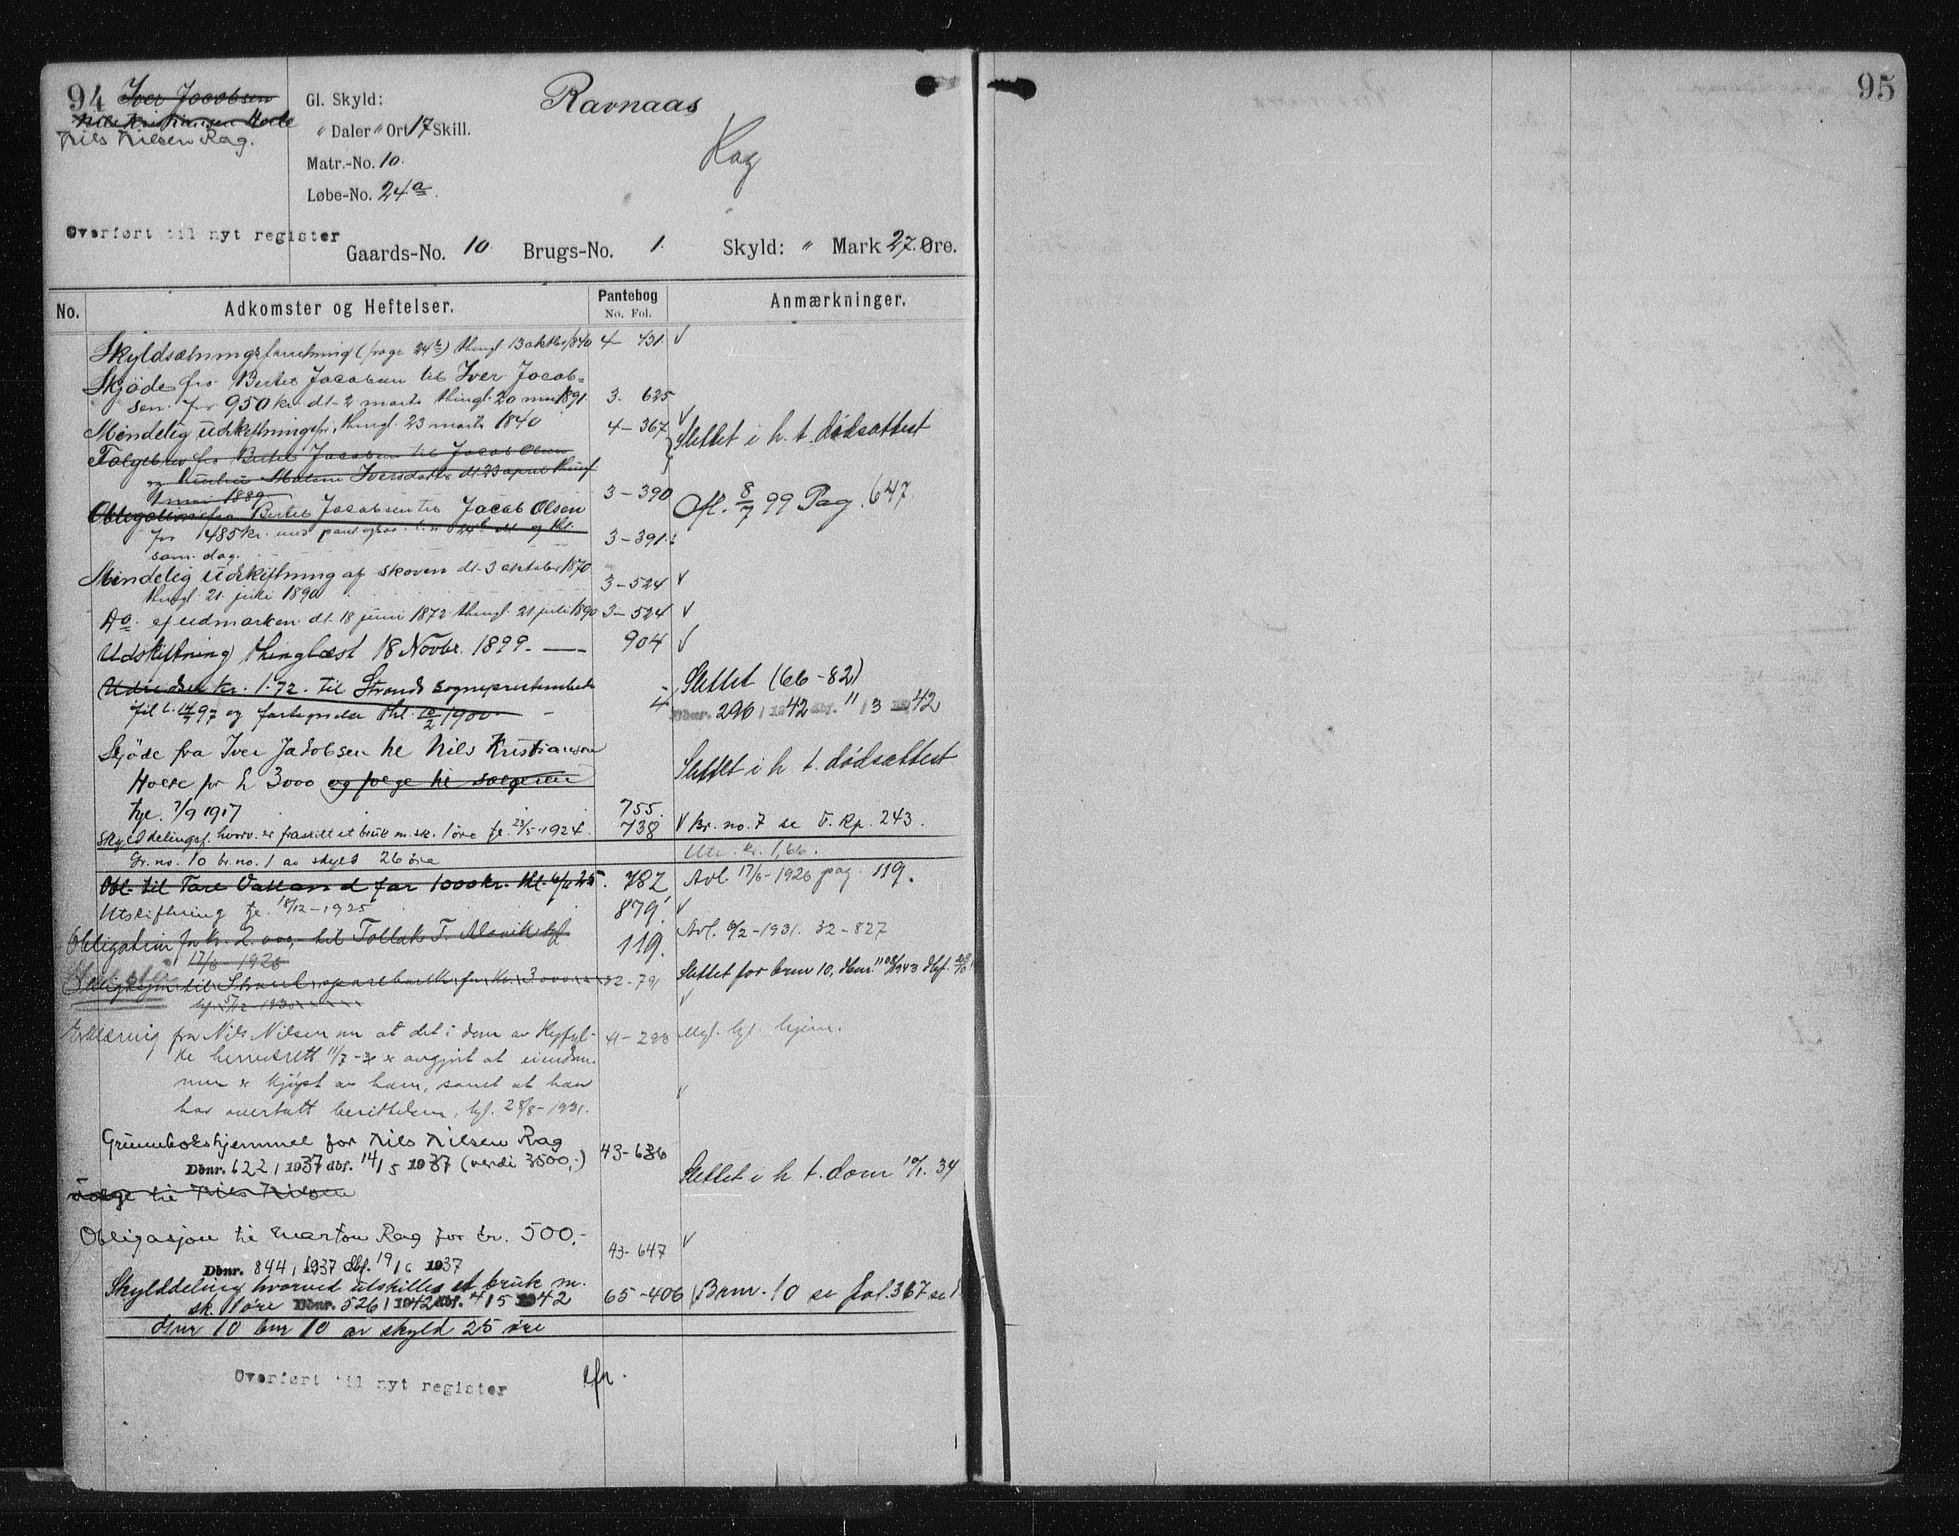 94 Iver Jacobsen
Nils Kristiansen Hoele
Nils Nilsen Rag.
Gl. Skyld:
" Daler " Ort 17 Skill.
Matr.-No. 10.
Løbe-No. 24 a.
Ravnaas
Rag
95
Overført til nyt register
Gaards-No. 10. Brugs-No. 1. Skyld: " Mark 27. Øre.
No. Adkomster og Heftelser. Pantebog No. Fol. Anmærkninger.
Skyldsætningsforretning (page 24 b) thingl. 13 oktbr 1840 4- 431 √
Skjøde fra Bertel Jacobsen til Iver Jacob-
sen for 950 kr. dt. 2 marts thingl. 20 mai 1891. 3. 625
Mindelig udskiftningsfr. thingl. 23 marts 1840 4-367 √
Slettet i h. t. dødsattest
Følgebrev fra Bertel Jacobsen til Jacob Olsen
og Malene Iversdatter dt. 23 april thingl
1 mai 1889 3-390
Obligation fra Bertel Jacobsen til Jacob Olsen Afl. 8/7 99 Pag. 647
for 1485 kr. med pant og thl.
sam. dag. 3-391.
Mindelig udskiftning af skoven dt. 3 oktober 1870
thingl. 21 juli 1890 3-524 √
Do. af udmarken dt. 18 juni 1872 thingl. 21 juli 1890 3-524 √
Udskiftning thinglæst 18 Novbr. 1899. 904 √
Udredsel kr. 1.72. til Strands sogneprestembede Slettet (66-82)
thl. 10/2 1900 Dbnr. 296 / 1942 dbf. 11 / 3 1942
Skjøde fra Iver Jakobsen til Nils Kristiansen
Hoele for k 3000 og folge til sælgeren Slettet i h. t. dødsattest
tgl. 7/9 1917 755.
Skylddelingsf. hvorv. er fraskilt et bruk m. sk. 1 øre tgl. 23/5-1924. 738 √ Br. no. 7 se F. Rp. 243.
Gr. no. 10 br. no. 1 av skyld 26 øre Utr. kr. 1,66.
Obl. til Tore Valland for 1000 kr. thl. 25. 782 Avl. 17/6-1926 pag. 119.
Utskiftning tgl. 18/12-1925 879. √
Obligation for kr. 2.000.- til Tollak T. Alsvik tgl. 119. Avl. 6/2-1931. 32-827
17/6-1926
Obligasjon til Strand sparebank for kr. 3000 32-791 Slettet for brnr 10. dbnr. 1108/1943 dbf.
tgl. 5/12-1930 √
Erklæring fra Nils Nilsen om at det i dom av Ryfyl- 41-293 Mgl. tgl. hjem.
ke herredsrett 11/7-31 er avgjort at eiendom-
men er kjøpt av ham, samt at han
har overtatt besittelsen, tgl. 28/8-1931. √
Grunnbokshjemmel for Nils Nilsen Rag 43-636
Dbnr. 622 / 1937 dbf. 14 / 5 1937 (verdi 3500,-) Slettet i h. t. dom 10/1. 34
Følge til Nils Nilsen
Obligasjon til Marton Rag for kr. 500.- 43-647 √
Dbnr. 844 / 1937 dbf. 19 / 6 1937
Skylddeling hvorved utskilles et bruk m.
sk. 1 øre Dbnr. 526 / 1942 dbf. 4 / 5 1942 65-406 Brnr. 10 se fol. 367
Gnr 10 bnr 10 av skyld 25 øre
Overført til nyt register